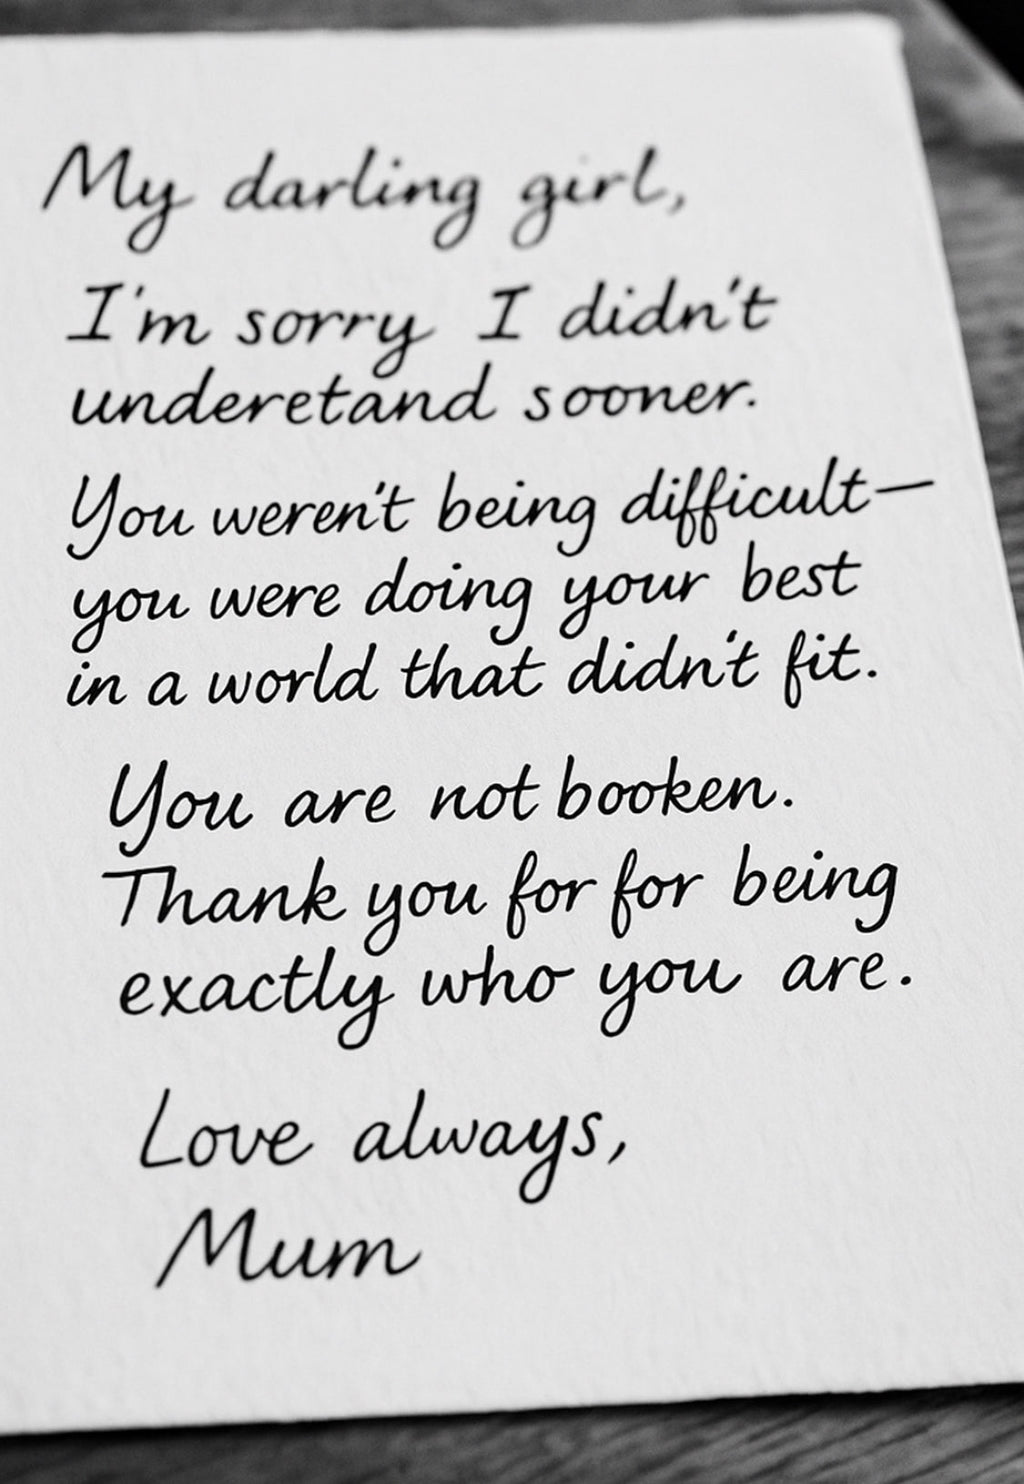 My darling girl,
I'm sorry I didn't
underetand sooner.
You weren't being difficult—
you were doing your best
in a world that didn't fit.
You are not booken.
Thank you for for being
exactly who you are.
Love always,
Mum